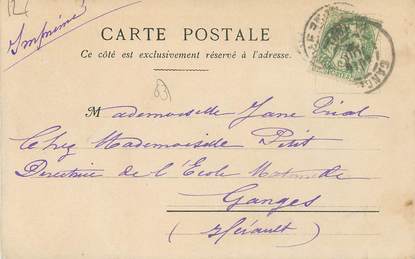 Imprimé
CARTE POSTALE
Ce côté est exclusivement réservé à l'adresse.
Mademoiselle Jane Vial
Chez Mademoiselle Petit
Directrice de l'École Mat<sup>lle</sup> de
Ganges
(Hérault)